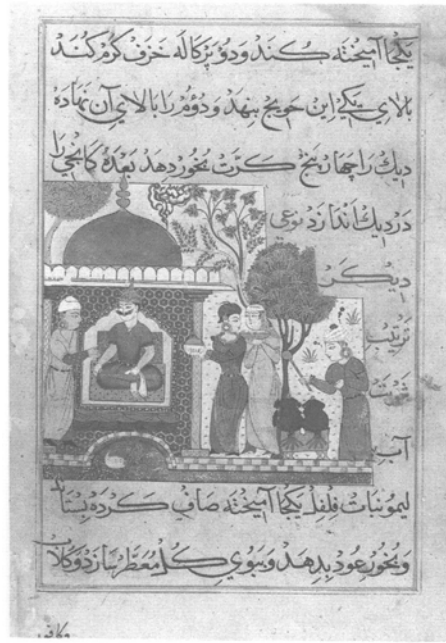 یکجا آمیخته کنند و دو پرکاله خزف گرم کنند
بالای یکی این حویج بنهد و دوم را بالای آن نهاده
دیك را چهار پنج کرت بخور دهد بعده کانجی را
در دیك اندازد نوعی
دیکر
ترتیب
شربت
آب
لیمو نبات فلفل یکجا آمیخته صاف کرده بستاند
و بخور عود بدهد و ببوی کل معطر سازد و کلاب